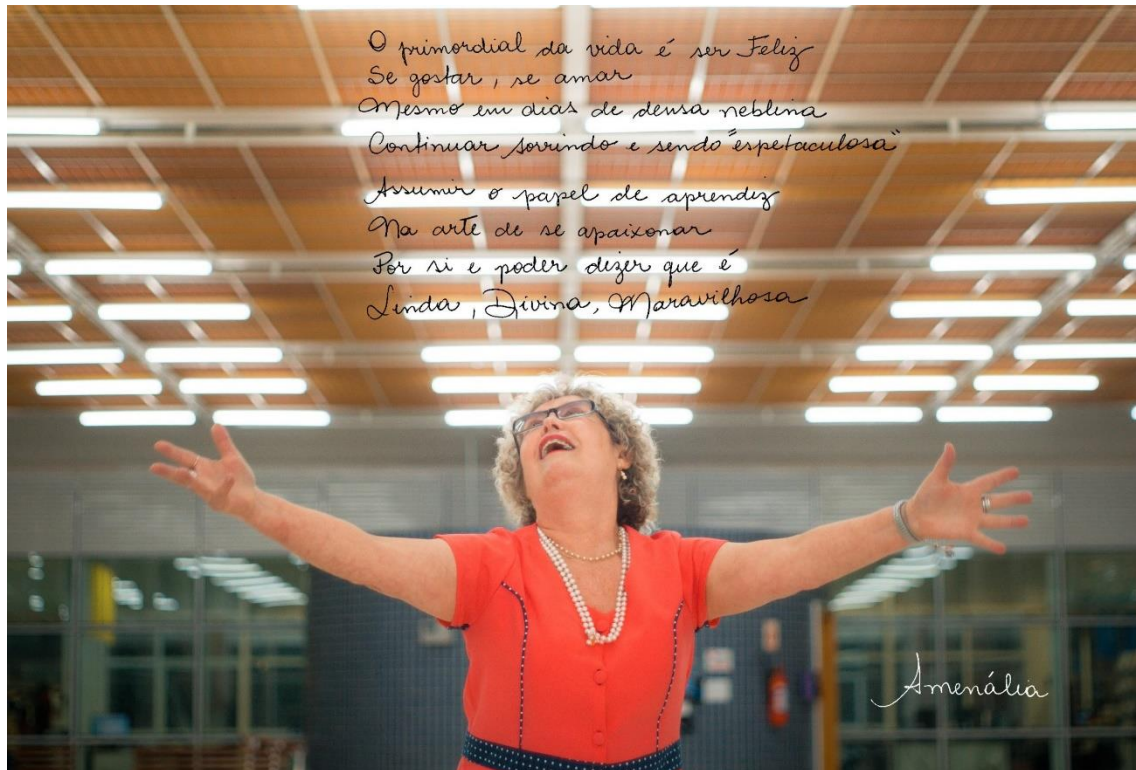 O primordial da vida é ser Feliz
Se gostar, se amar
Mesmo em dias de densa neblina
Continuar sorrindo e sendo "espetaculosa"
Assumir o papel de aprendiz
Na arte de se apaixonar
Por si e poder dizer que é
Linda, Divina, Maravilhosa
Amenália